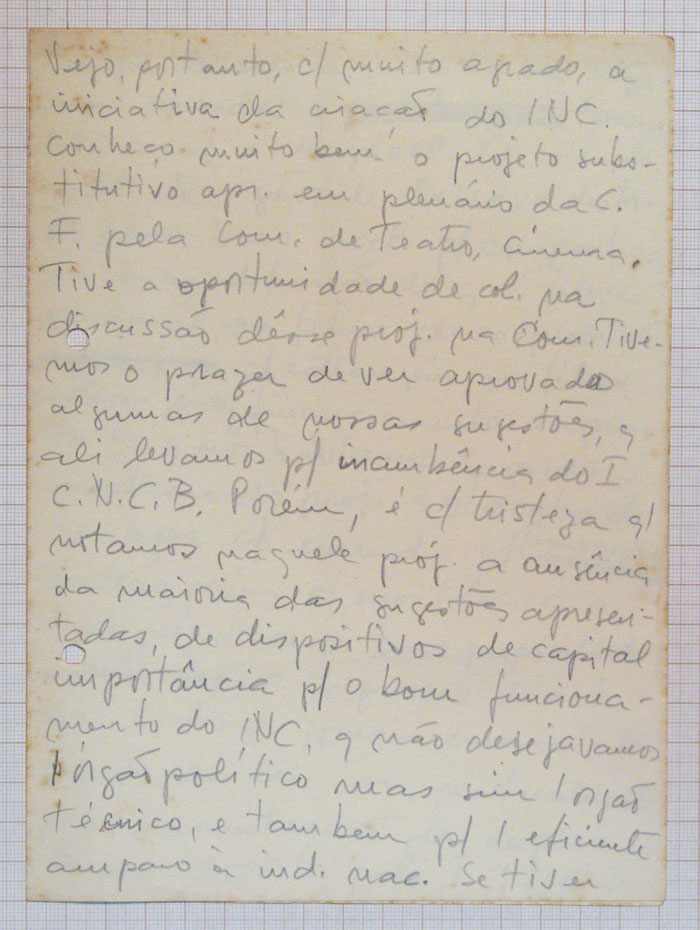 Vejo, portanto, c/ muito agrado, a
iniciativa da criação do INC.
Conheço muito bem o projeto subs-
titutivo apr. em plenário da C.
F. pela Com. de Teatro, Cinema.
Tive a oportunidade de col. na
discussão dêsse proj. na Com. Tive-
mos o prazer de ver aprovadas
algumas de nossas sugestões, q
ali levamos p/ incumbência do I
C.N.C.B. Porém, é c/ tristeza q/
notamos naquele proj. a ausência
da maioria das sugestões apresen-
tadas, de dispositivos de capital
importância p/ o bom funciona-
mento do INC, q não desejavamos
1 órgão político mas sim 1 orgão
técnico, e tambem p/ 1 eficiente
amparo à ind. nac. Se tiver